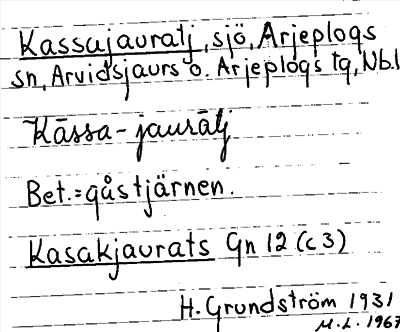 Kassujauratj, sjö, Arjeplogs
sn, Arvidsjaurs o. Arjeplogs tg, Nbl
Kāssa-jaurātj
Bet.= gåstjärnen.
Kasakjaurats Gn 12 (c3)
H. Grundström 1931
M.L. 1967